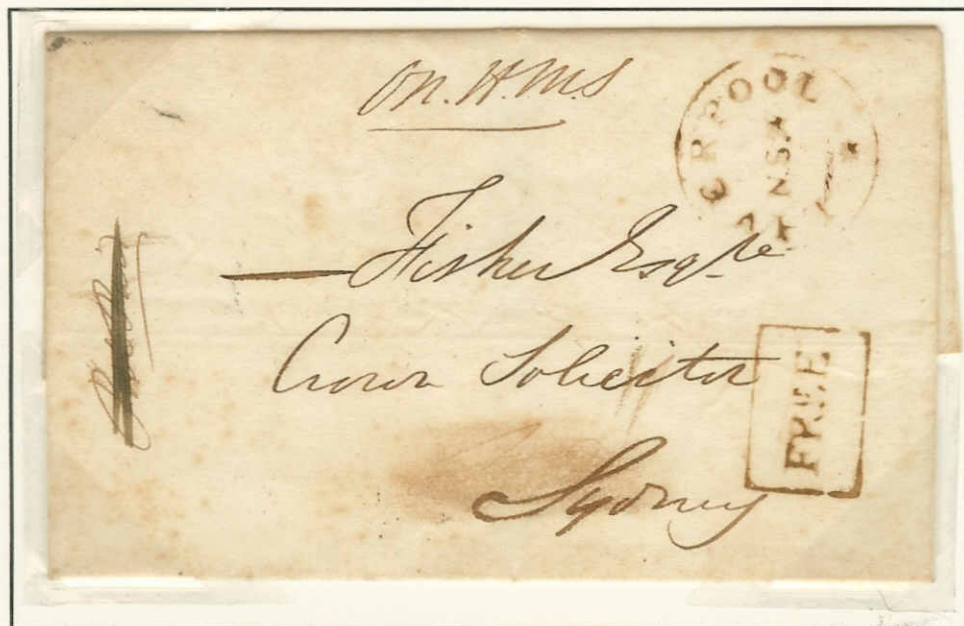 On. H. M. S
ERPOOL
N.S.W
Fisher Esqre
Crown Solicitor
FREE
Sydney